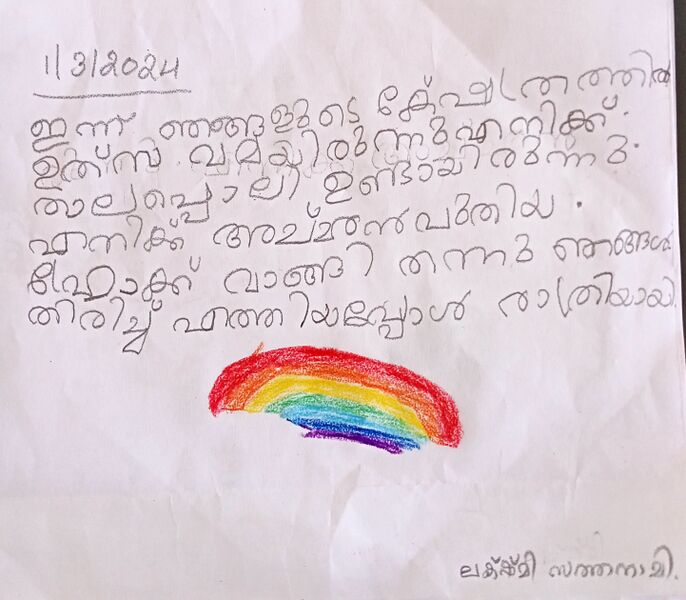 1/3/2024
ഇന്ന് ഞങ്ങളുടെ ക്ഷേത്രത്തിൽ
ഉത്സവമയിരുന്നു എനിക്ക്.
താലപ്പൊലി ഉണ്ടായിരുന്നു.
എനിക്ക് അച്മൻ പുതിയ.
ഫ്രോക്ക് വാങ്ങി തന്നു ഞങ്ങൾ
തിരിച്ച് എത്തിയപ്പോൾ രാത്രിയായി.
ലക്ഷ്മി സത്തനാമി.